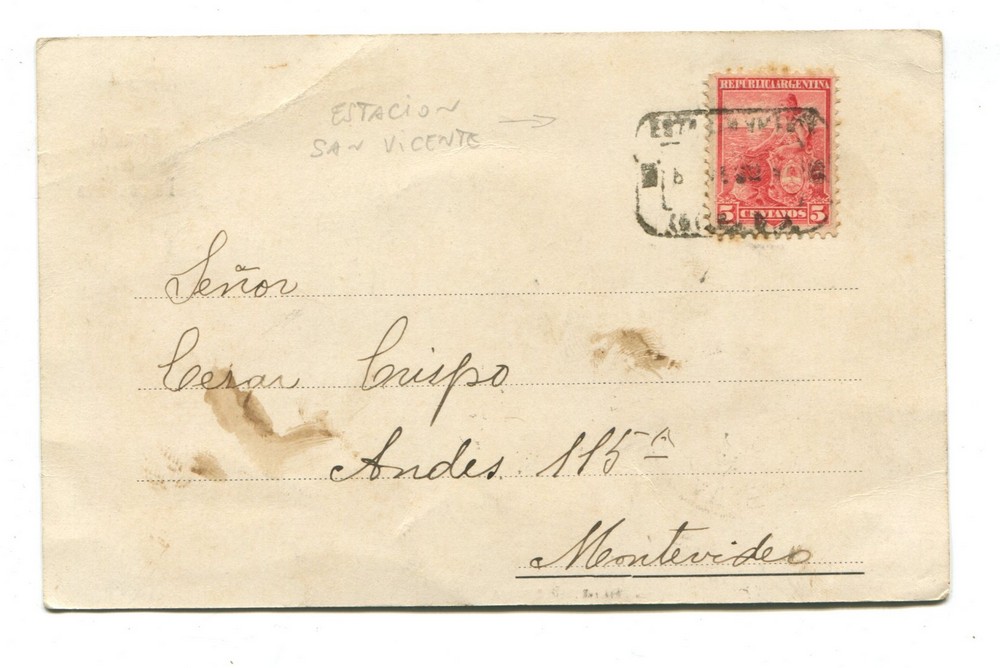 ESTACION
SAN VICENTE →
REPÚBLICA ARGENTINA
5 CENTAVOS 5
Señor
Cesar Crispo
Andes 115ᴬ
Montevideo